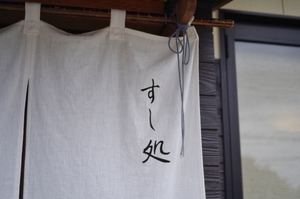 すし処